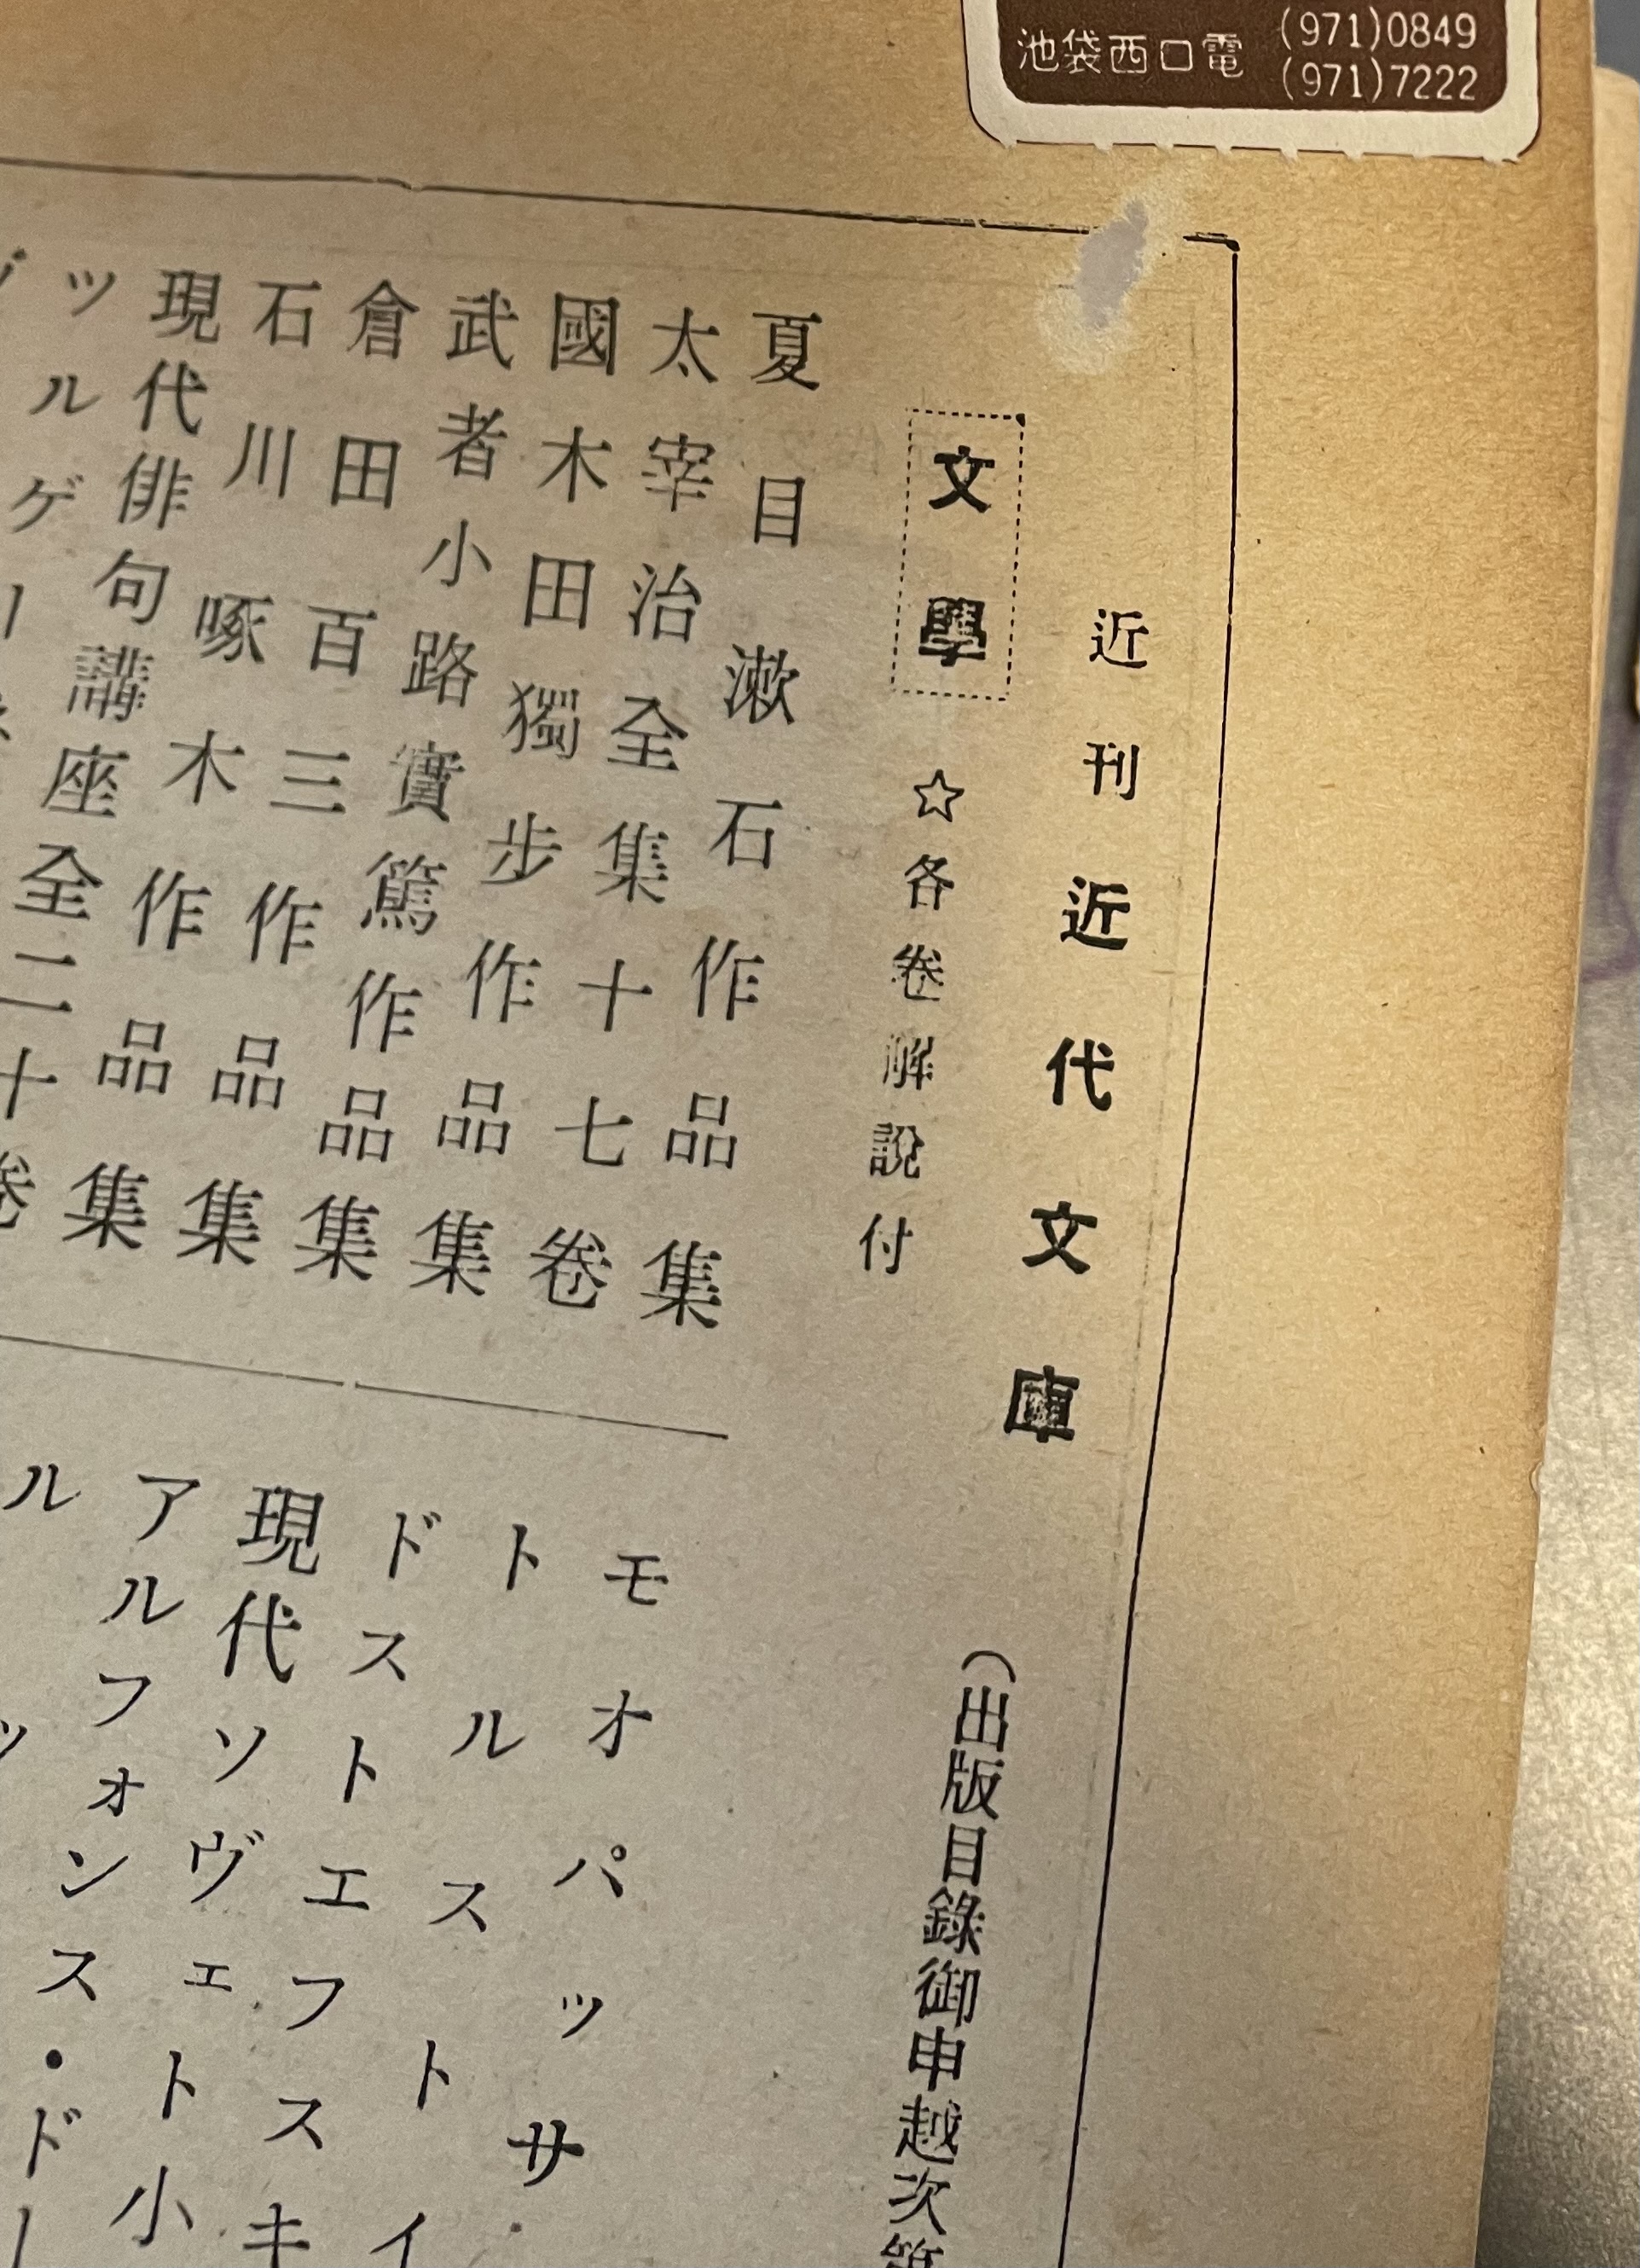 池袋西口電 (971)0849
(971)7222
近刊近代文庫
(出版目錄御申越次第
文學
☆各卷解説付
夏目漱石作品集
太宰治全集十七卷
國木田獨步作品集
武者小路實篤作品集
倉田百三作品集
石川啄木作品集
現代俳句講座全二十卷
ツルゲー
モオパッサ
トルストイ
ドストエフスキ
現代ソヴェト小
アルフォンス・ドー
ル